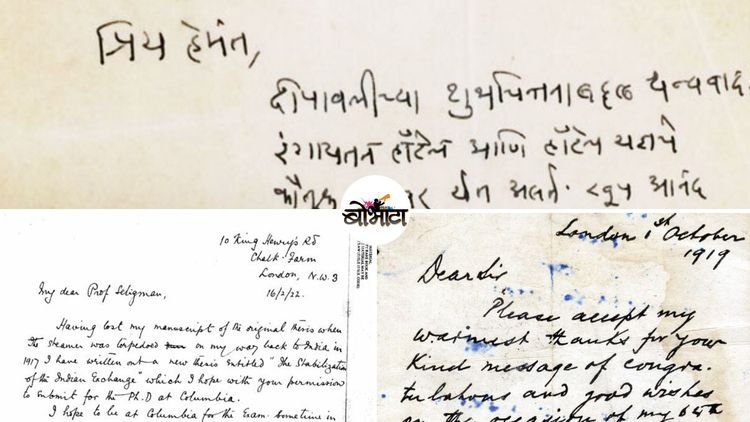 प्रिय हेमंत,
दीपावलीच्या शुभचिंतनाबद्दल धन्यवाद.
रंगायतन हॉटेल आणि हॉटेल
कौतुक येत असते. खूप आनंद
बोभाटा
10 King Henry's Rd
Chalk Farm
London, N.W. 3
16/2/22.
My dear Prof Seligman,
Having lost my manuscript of the original thesis when
the steamer was torpedoed on my way back to India in
1917 I have written out a new thesis entitled "The Stabilization
of the Indian Exchange" which I hope with your permission
to submit for the Ph.D at Columbia.
I hope to be at Columbia for the Exam. sometime in
London 1st October
1919
Dear Sir
Please accept my
warmest thanks for your
kind message of congra-
tulations and good wishes
on the occasion of my